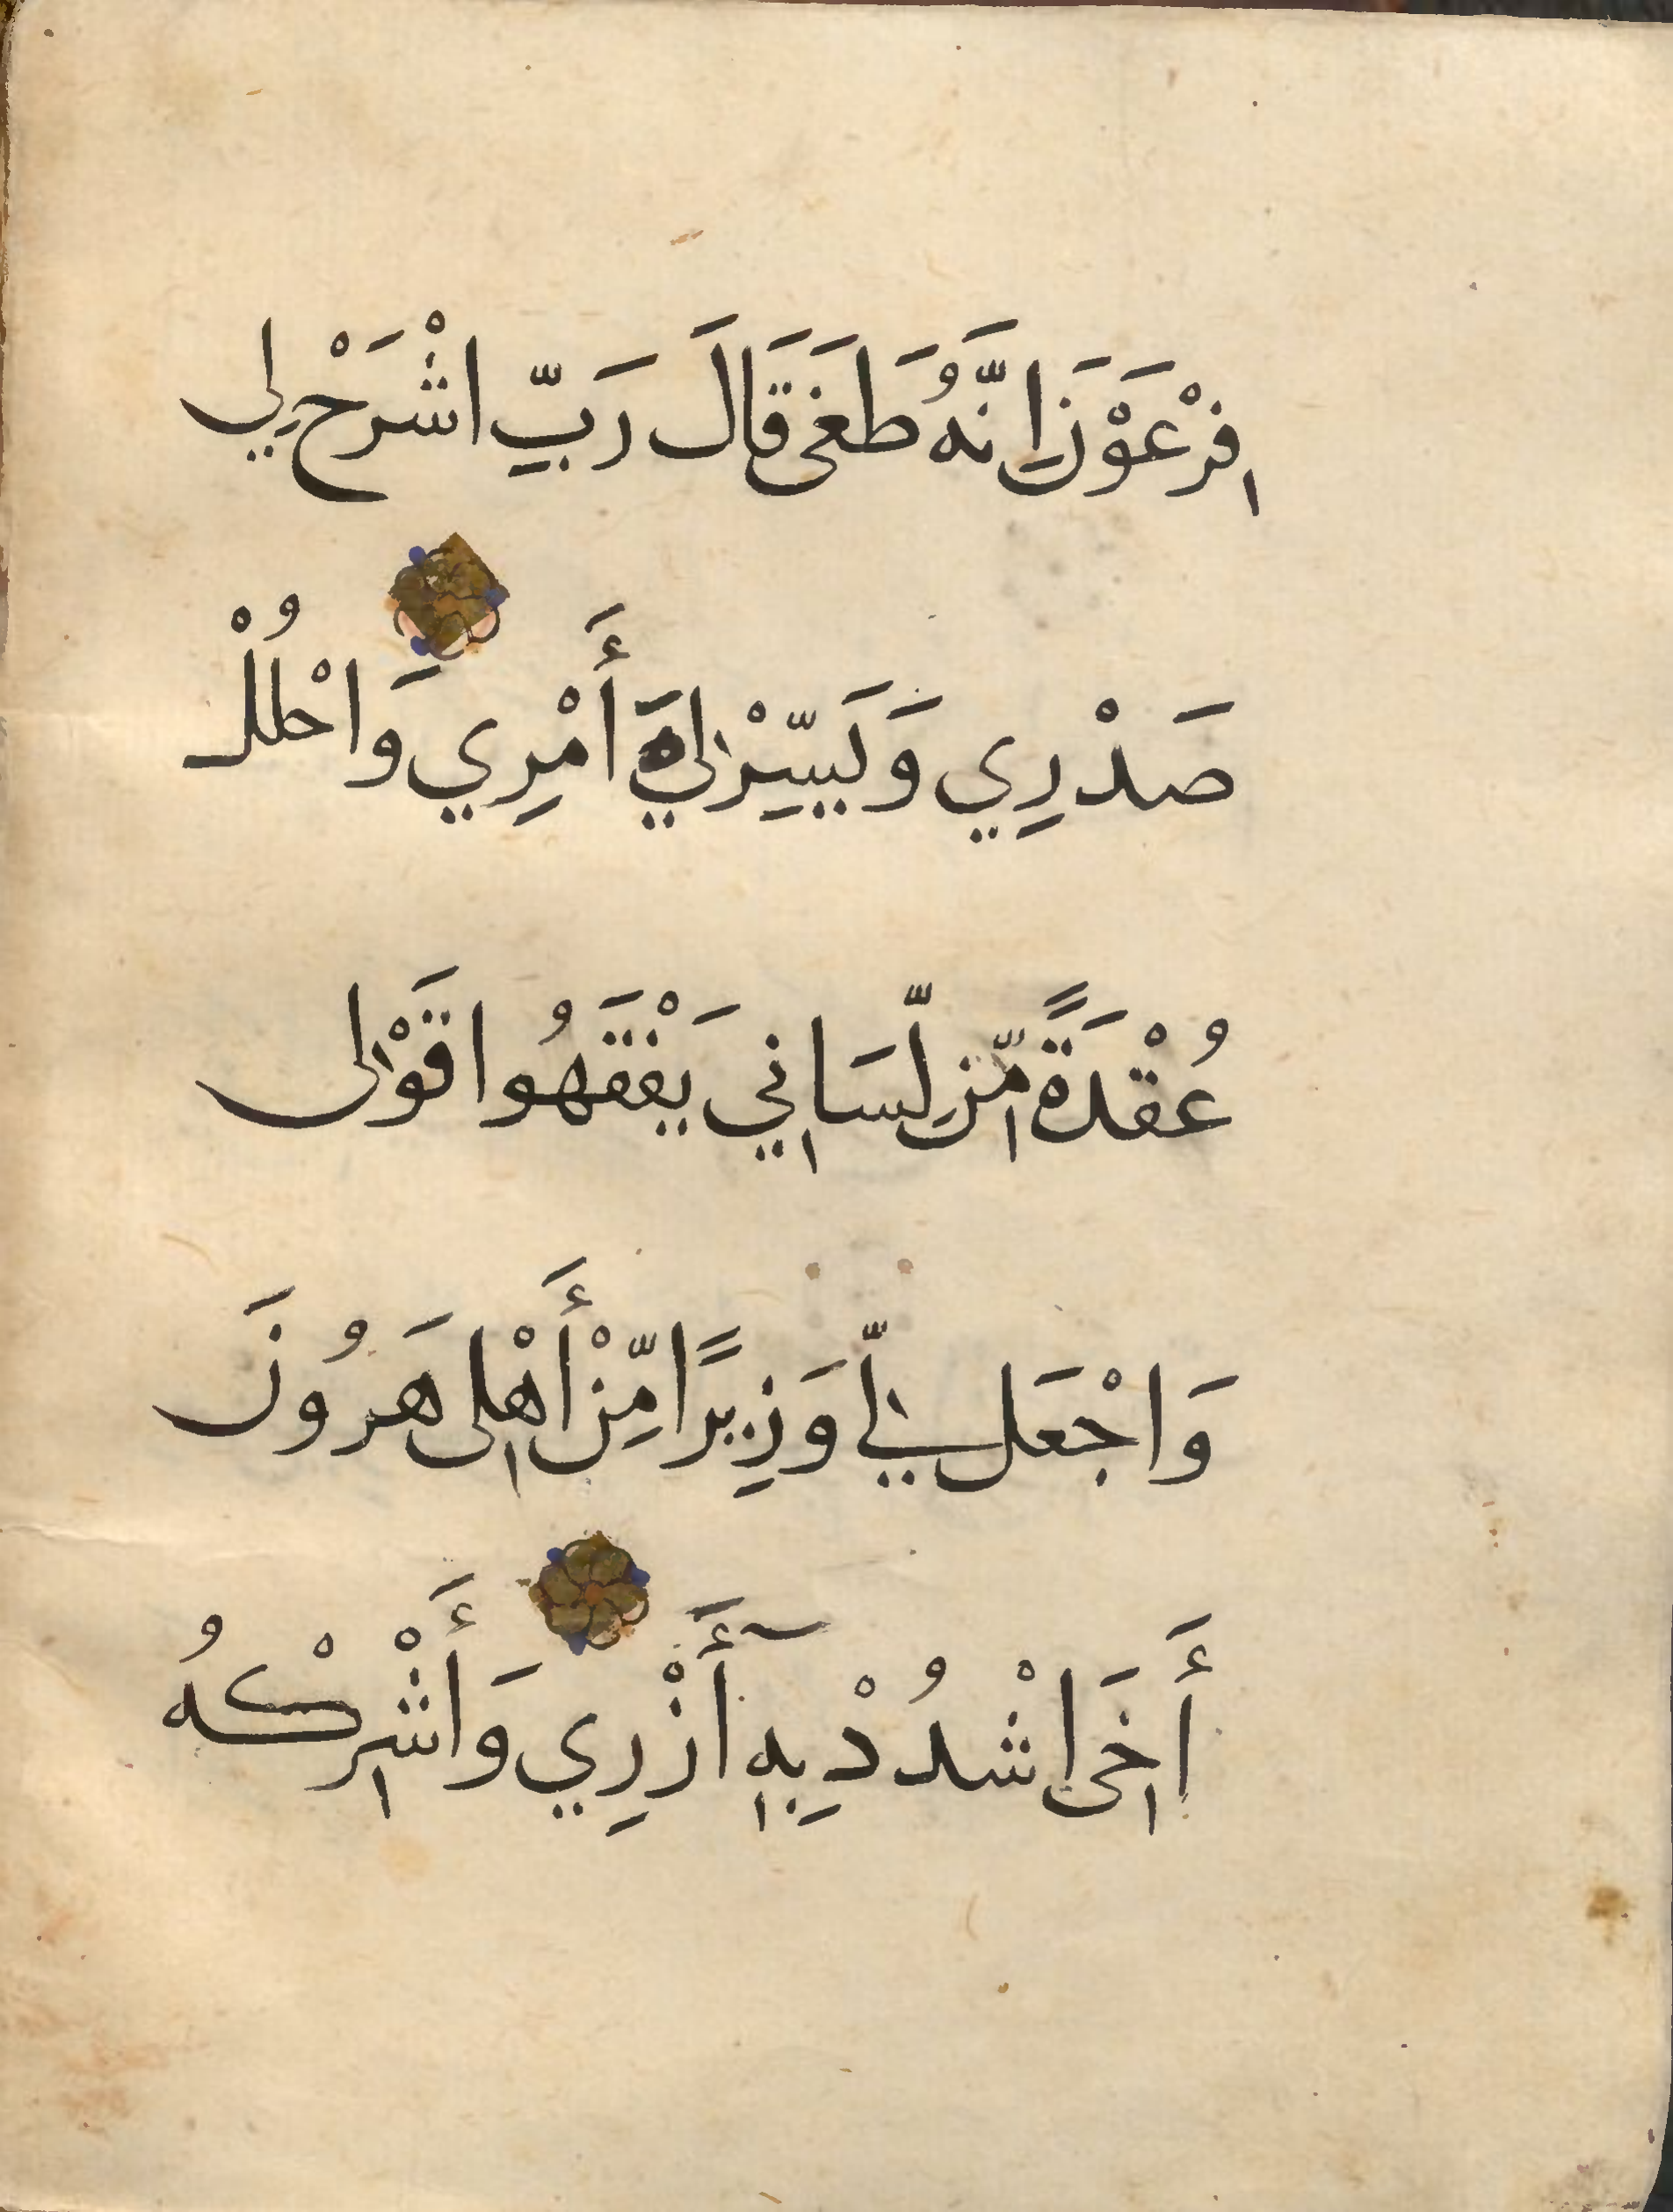 فِرْعَوْنَ إِنَّهُ طَغَى قَالَ رَبِّ اشْرَحْ لِي
صَدْرِي وَيَسِّرْ لِي أَمْرِي وَاحْلُلْ
عُقْدَةً مِّن لِّسَانِي يَفْقَهُوا قَوْلِى
وَاجْعَل لِّي وَزِيرًا مِّنْ أَهْلِى هَرُونَ
أَخِى اشْدُدْ بِهِ أَزْرِي وَأَشْرِكْهُ